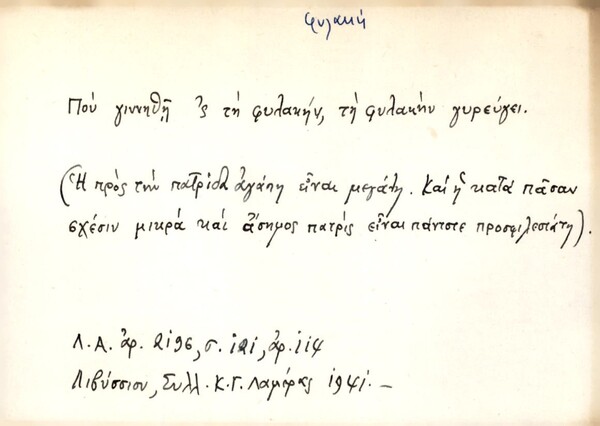 φυλακή
Ποὺ γιννηθῇ 'ς τὴ φυλακήν, τὴ φυλακὴν γυρεύγει.
(Ἡ πρὸς τὴν πατρίδα ἀγάπη εἶναι μεγάλη. Καὶ ἡ κατὰ πᾶσαν
σχέσιν μικρὰ καὶ ἄσημος πατρὶς εἶναι πάντοτε προσφιλεστάτη).
Λ.Α. ἀρ. 2196, σ. 121, ἀρ. 114
Λιβύσσιον, Συλλ. Κ.Γ. Λαμέρας 1941. –